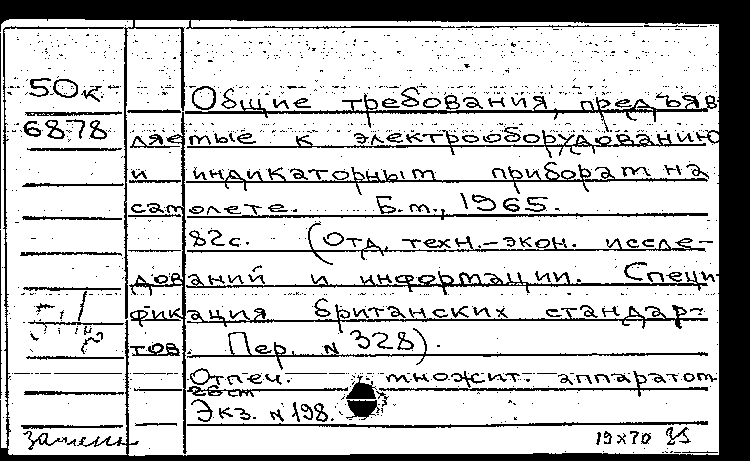 50к
6878
Общие требования, предъяв
ляемые к электрооборудованию
и индикаторным приборам на
самолете. Б.м., 1965.
82с. (Отд. техн.-экон. иссле-
дований и информации. Специ-
фикация британских стандар-
тов. Пер. № 328).
Отпеч. множит. аппаратом
26 см
Экз. № 198.
19х70